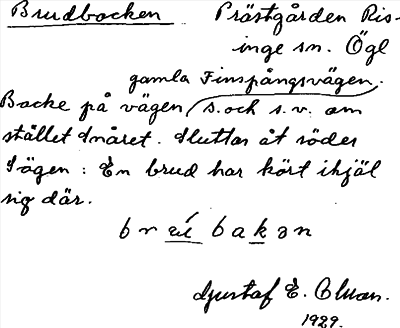 Brudbacken Prästgården Ris-
inge sn. Ögl
gamla Finspångsvägen.
Backe på vägen s. och s.v. om
stället Snåret. Sluttar åt söder
Sägen: En brud har kört ihjäl
sig där.
Gustaf E. Olsson.
1929.